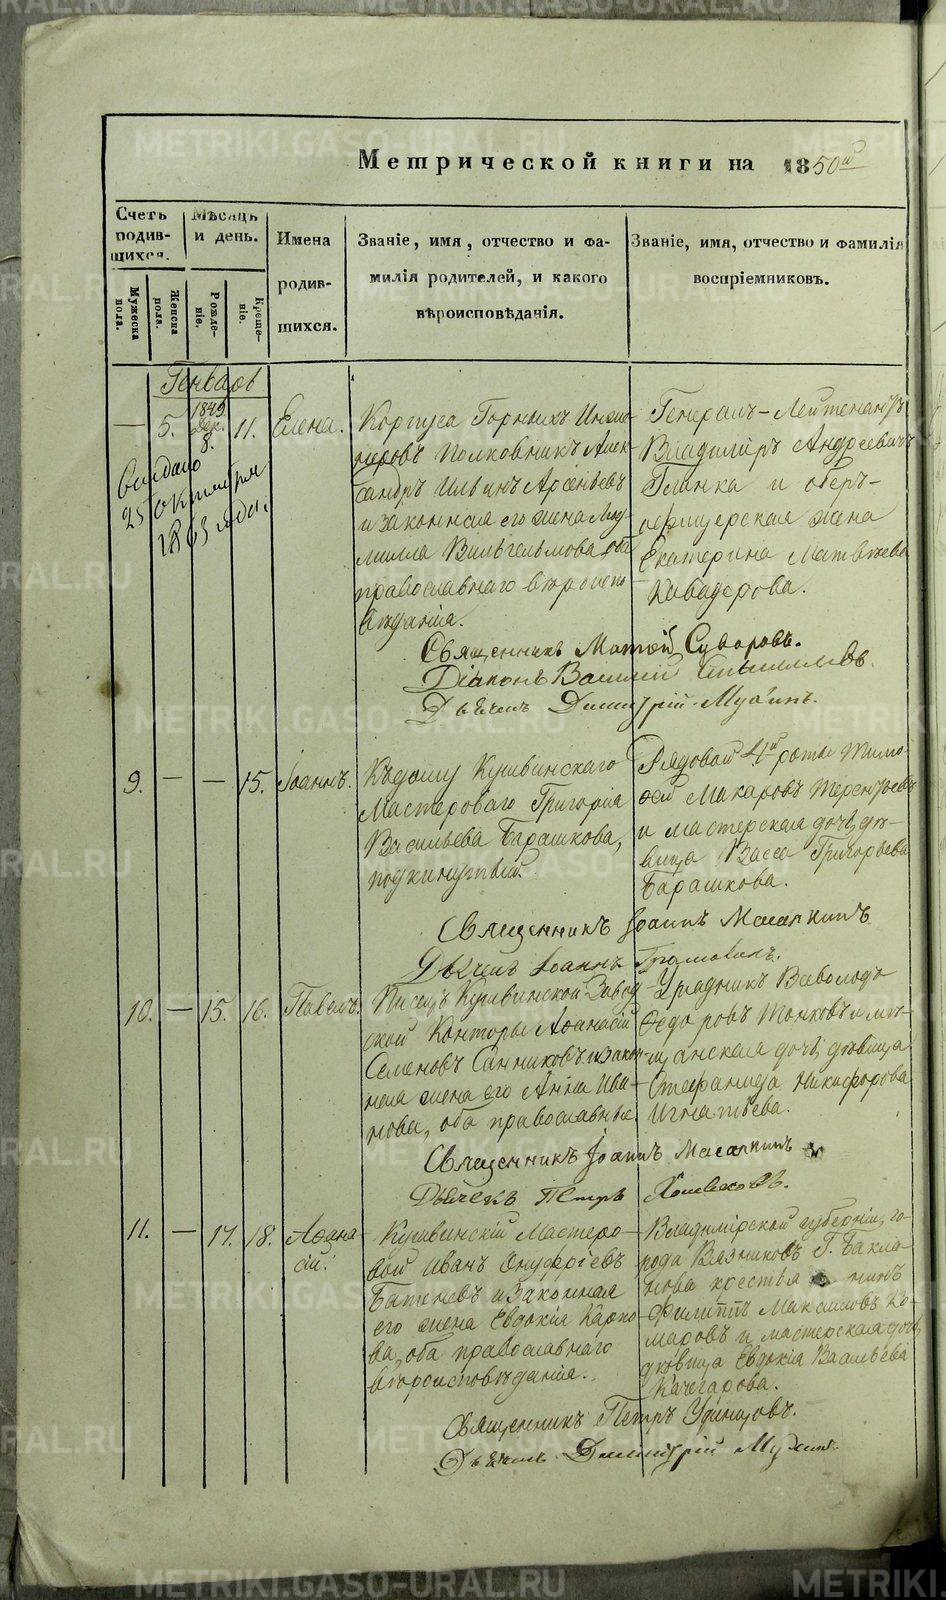 Метрической книги на 1850й
Счетъ родив-шихся.
Мѣсяцъ и день.
Имена родив-шихся.
Званіе, имя, отчество и фа-
милія родителей, и какого
вѣроисповѣданія.
Званіе, имя, отчество и фамилія
воспріемниковъ.
Мужеска пола.
Женска пола.
Рожде-ніе.
Креще-ніе.
Генварь
— 5. 1849 Дек. 8. 11. Елена.
Выдано
25 октября
1863 года.
Корпуса Горныхъ Инже-
неровъ Полковникъ Алек-
сандръ Ильинъ Арсеньевъ
и законная его жена Люд-
милла Вильгельмова, оба
православнаго вѣроиспо-
вѣданія.
Генералъ-Лейтенантъ
Владиміръ Андреевичъ
Глинка и оберъ-
офицерская жена
Екатерина Матвѣева
Кавадерова.
Священникъ Матѳій Суворовъ.
Діаконъ Василій
Дьячекъ Димитрій
9. — — 15. Іоаннъ.
Къ дому Кушвинскаго
Мастероваго Григорія
Васильева Барашкова,
подкинутый.
Рядовой 4й роты Тимо-
ѳей Макаровъ Терентьевъ
и мастерская дочь, дѣ-
вица Васса Григорьева
Барашкова.
Священникъ Іоаннъ
Дьячекъ Іоаннъ
10. — 15. 16. Павелъ.
Писецъ Кушвинской Завод-
ской Конторы Аѳанасій
Семеновъ Санниковъ и закон-
ная жена его Анна Ива-
нова, оба православные.
Урядникъ Всеволодъ
Ѳедоровъ Тонковъ и мѣ-
щанская дочь, дѣвица
Стефанида Никифорова
Игнатьева.
Священникъ Іоаннъ
Дьячекъ Петръ
11. — 17. 18. Аѳана-
сій.
Кушвинскій Мастеро-
вой Иванъ Онуфріевъ
Батеневъ и законная
его жена Евдокія Карпо-
ва, оба православнаго
вѣроисповѣданія.
Владимірской губерніи, го-
рода Вязниковъ Г. Бакла-
нова крестьянинъ
Филиппъ Максимовъ Ко-
маровъ и мастерская дочь,
дѣвица Евдокія Васильева
Качегарова.
Священникъ Петръ Удинцовъ.
Дьячекъ Димитрій
METRIKI.GASO-URAL.RU